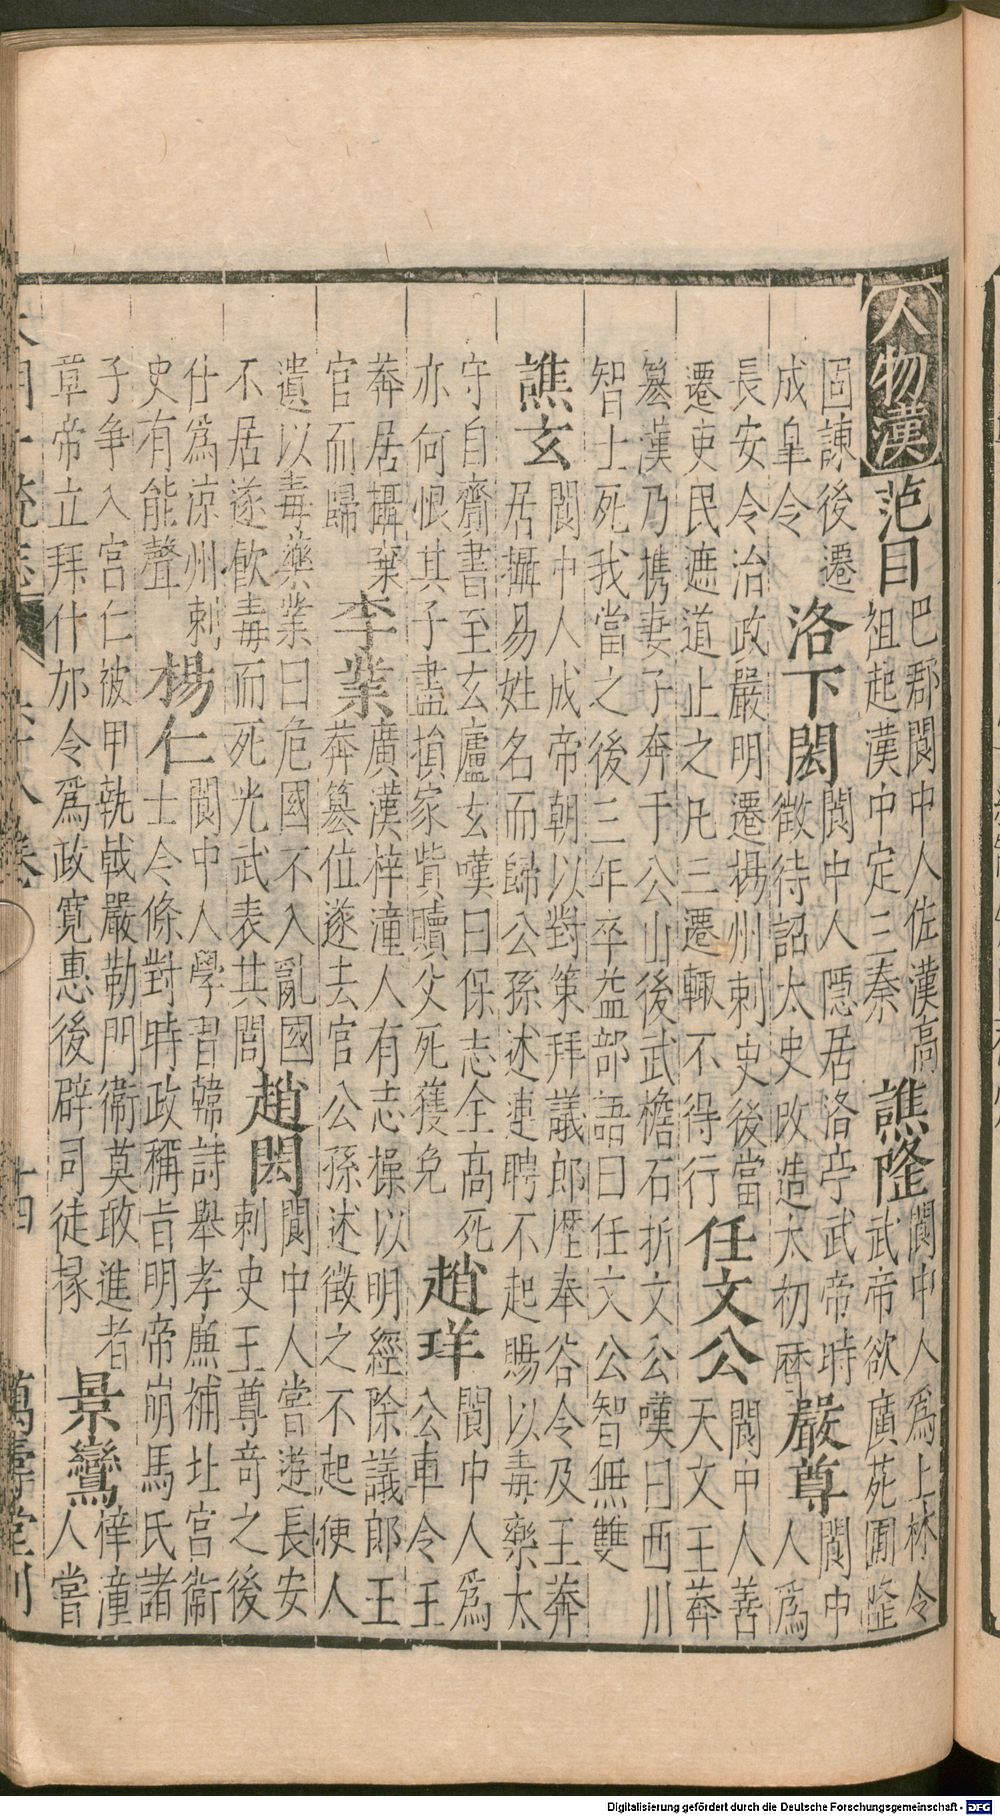 人物漢 范目 巴郡閬中人佐漢高
祖起漢中定三秦 譙隆 閬中人爲上林令
武帝欲廣苑囿隆
固諫後遷
成皐令 洛下閎 閬中人隱居洛亭武帝時
徵待詔太史改造太初曆 嚴尊 閬中
人爲
長安令治政嚴明遷揚州刺史後當
遷吏民遮道止之凡三遷輒不得行 任文公 閬中人善
天文王莽
簒漢乃携妻子奔于公山後武檐石折文公嘆曰西川
智士死我當之後三年卒益部語曰任文公智無雙
譙玄 閬中人成帝朝以對策拜議郎歷奉谷令及王莽
居攝易姓名而歸公孫述連聘不起賜以毒藥太
守自齎書至玄廬玄嘆曰保志全高死
亦何恨其子盡損家貲贖父死獲免 趙珜 閬中人爲
公車令王
莽居攝棄
官而歸 李業 廣漢梓潼人有志操以明經除議郎王
莽簒位遂去官公孫述徵之不起使人
遺以毒藥業曰危國不入亂國
不居遂飲毒而死光武表其閭 趙閎 閬中人嘗遊長安
刺史王尊奇之後
仕爲涼州刺
史有能聲 楊仁 閬中人學習韓詩舉孝廉補北宮衛
士令條對時政稱旨明帝崩馬氏諸
子爭入宮仁被甲執戟嚴勒門衛莫敢進者
章帝立拜什邡令爲政寬惠後辟司徒掾 景鸞 梓潼
人嘗
大明一統志 十四 萬壽堂刊
Digitalisierung gefördert durch die Deutsche Forschungsgemeinschaft - DFG